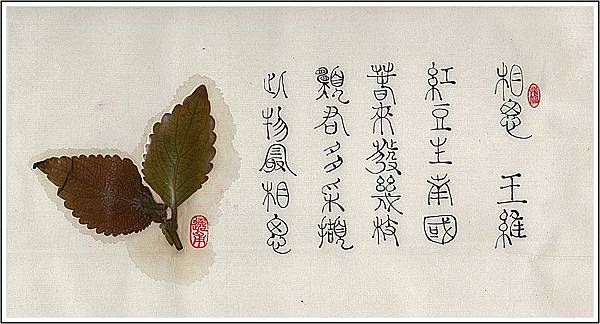 相思 王維
紅豆生南國
春來發幾枝
願君多采擷
此物最相思